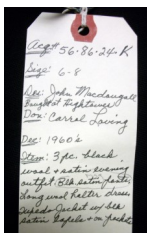 Acq# 56-86-24-K
Size: 6-8
Des: John Macdougall
Bought at Hightower
Don: Carrol Loving
Dec: 1960's
Item: 3 pc. black
wool & satin evening
outfit: Blk satin pants,
long wool halter dress,
tuxedo jacket w/ blk
satin lapels on jacket